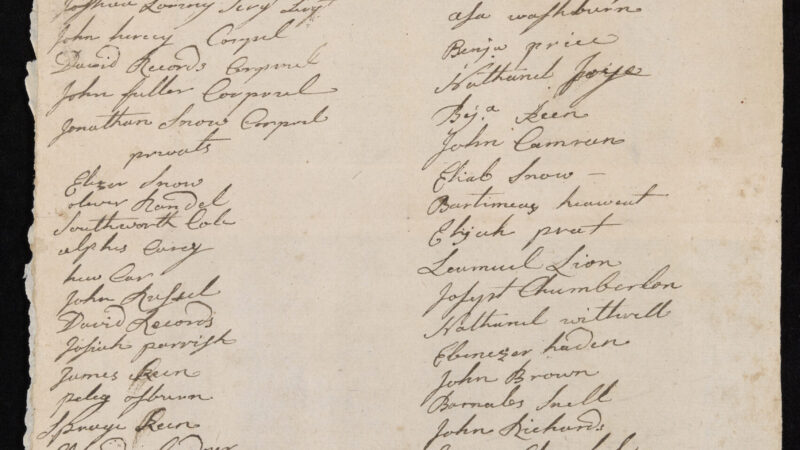 Joshua Loring
John hercey Corpel
David Records Corporel
John fuller Corporel
Jonathan Snow Corporel
privats
Elizer Snow
oliver Randel
Southworth Cole
alphes Carey
hew Car
John Russel
David Records
Josiah parrish
James Keen
peleg osburn
Sprage Keen
asa washburn
Benja price
Nathanel Joyce
Bej.a Keen
John Camran
Eliab Snow –
Bartimeas heawent
Elijah prat
Leumuel Lion
Josypt Chumberlon
Nathanel withrell
Ebenezer haden
John Brown
Barnabes Snell
John Richards